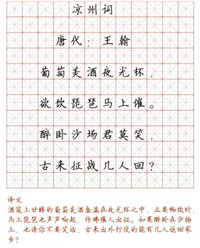 凉州词
唐代：王翰
葡萄美酒夜光杯，
欲饮琵琶马上催。
醉卧沙场君莫笑，
古来征战几人回？
译文
酒筵上甘醇的葡萄美酒盛满在夜光杯之中，正要畅饮时，
马上琵琶也声声响起，仿佛催人出征。如果醉卧在沙场
上，也请你不要笑话，古来出外打仗的能有几人返回家
乡？